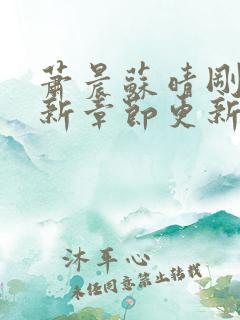 蕭晨蘇晴剛
新章節更新
沐平心
未经同意禁止转载